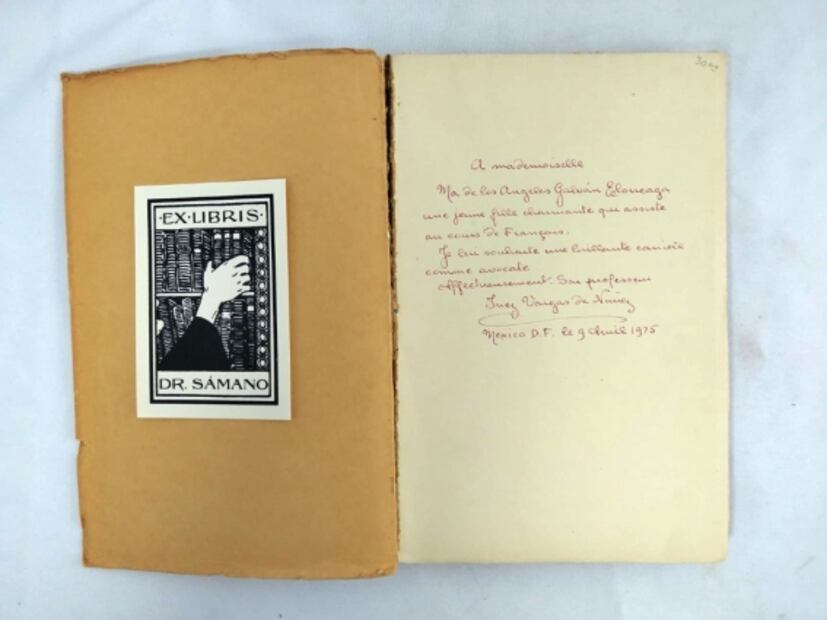 ·EX·LIBRIS·
DR. SÁMANO
A mademoiselle
Ma de los Angeles Galván Elorreaga
une jeune fille charmante qui assiste
au cours de Français.
Je lui souhaite une brillante carrière
comme avocate
Affectueusement. Son professeur
Inez Vargas de Núñez
Mexico D.F. le 9 Avril 1975